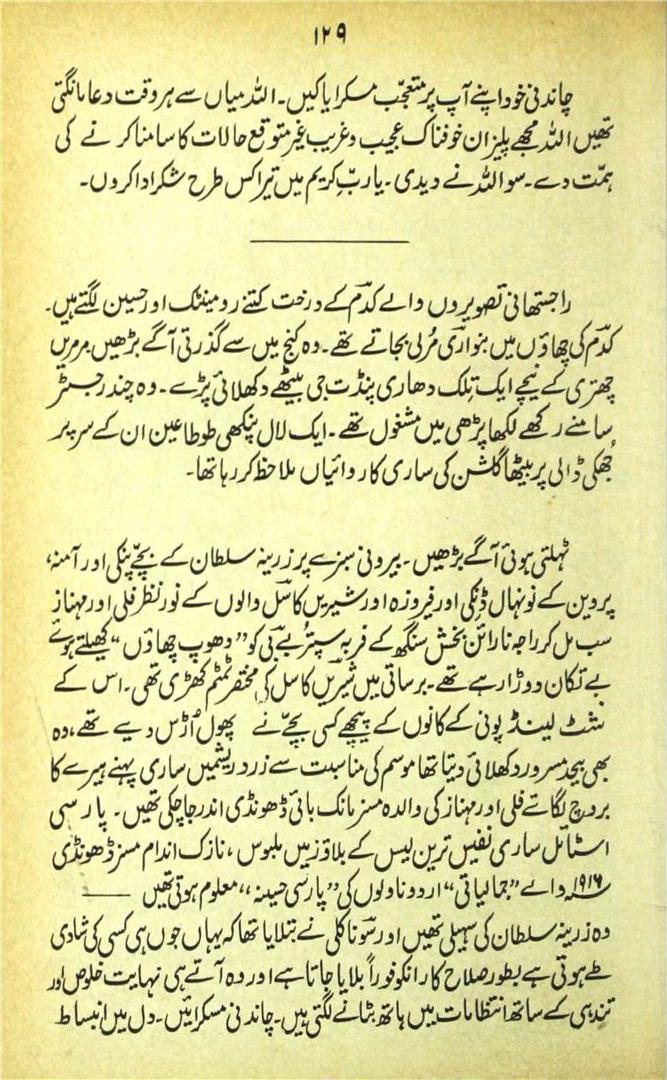 ۱۲۹
چاندنی خود اپنے آپ پر متعجّب مسکرایا کیں۔ اللہ میاں سے ہر وقت دعا مانگتی
تھیں اللہ مجھے پلیز ان خوفناک عجیب و غریب غیر متوقع حالات کا سامنا کرنے کی
ہمّت دے۔ سو اللہ نے دیدی۔ یا ربِّ کریم میں تیرا کس طرح شکر ادا کروں۔
راجستھانی تصویروں والے کدم کے درخت کتنے رومینٹک اور حسین لگتے ہیں۔
کدم کی چھاؤں میں بنواری مُرلی بجاتے تھے۔ وہ کنج میں سے گذرتی آگے بڑھیں۔ مرمریں
چھتری کے نیچے ایک تِلک دھاری پنڈت جی بیٹھے دکھلائی پڑے۔ وہ چند رجسٹر
سامنے رکھے لکھا پڑھی میں مشغول تھے۔ ایک لال پنکھی طوطا عین ان کے سر پر
جُھکی ڈالی پر بیٹھا گلشن کی ساری کاروائیاں ملاحظہ کر رہا تھا۔
ٹہلتی ہوئی آگے بڑھیں۔ بیرونی سبزے پر زرینہ سلطان کے بچّے پنکی اور آمنہ،
پروین کے نونہال ڈنکی اور فیروزہ اور شیریں کاسل والوں کے نورِ نظر فلی اور مہناز
سب مل کر راجہ نارائن بخش سنگھ کے فربہ سپتر بے بی کو ”دھوپ چھاؤں“ کھیلتے ہوئے
بے تکان دوڑا رہے تھے۔ برساتی میں شیریں کاسل کی مختصر ٹمٹم کھڑی تھی۔ اس کے
شٹ لینڈ پونی کے کانوں کے پیچھے کسی بچّے نے پھول اُڑس دیے تھے، وہ
بھی بیحد مسرور دکھلائی دیتا تھا موسم کی مناسبت سے زرد ریشمیں ساری پہنے ہیرے کا
بروچ لگاتے فلی اور مہناز کی والدہ مسز مانک بائی ڈھونڈی اندر جا چکی تھیں۔ پارسی
اسٹائل ساری نفیس ترین لیس کے بلاؤز میں ملبوس، نازک اندام مسز ڈھونڈی
۱۹۱۶ء والے ”جمالیاتی“ اردو ناولوں کی ”پارسی حسینہ“، معلوم ہوتی تھیں ——
وہ زرینہ سلطان کی سہیلی تھیں اور سونا کلی نے بتلایا تھا کہ یہاں جوں ہی کسی کی شادی
طے ہوتی ہے بطور صلاح کار انکو فوراً بلایا جاتا ہے اور وہ آتے ہی نہایت خلوص اور
تندہی کے ساتھ انتظامات میں ہاتھ بٹانے لگتی ہیں۔ چاندنی مسکرائیں۔ دل میں انبساط